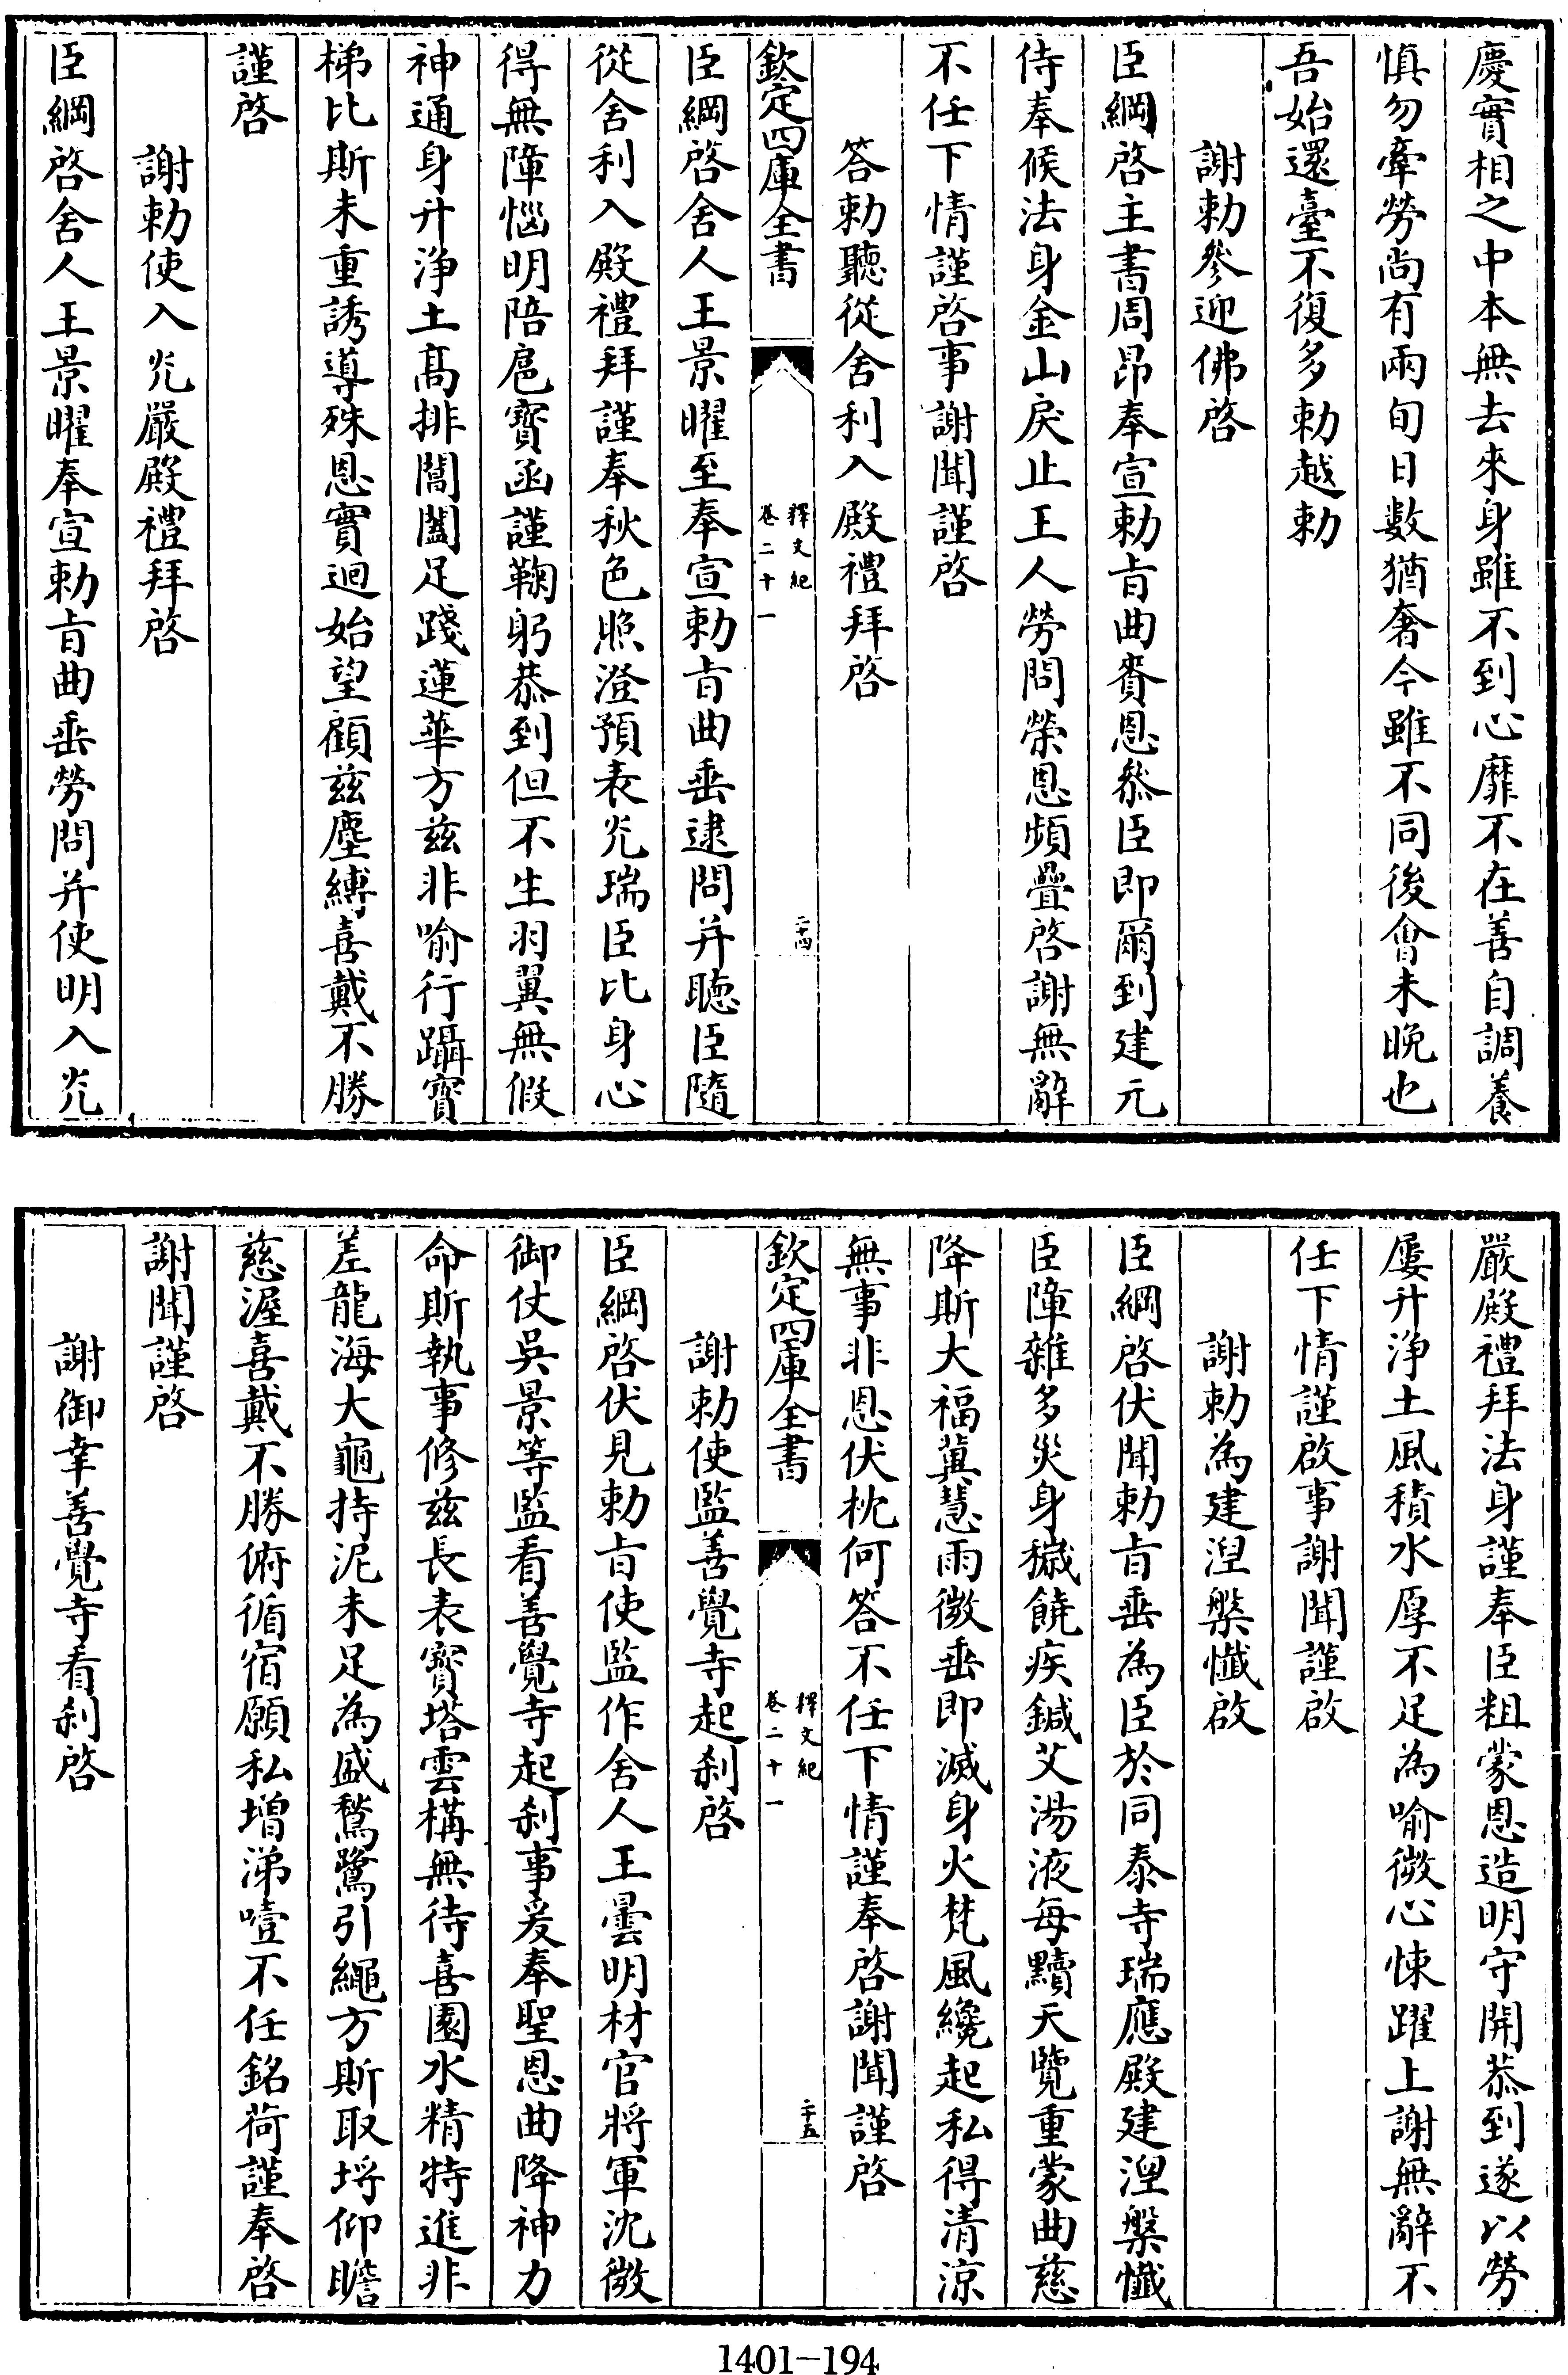 慶實相之中本無去來身雖不到心靡不在善自調養
慎勿牽勞尚有兩旬日數猶奢今雖不同後會未晚也
吾始還臺不復多勅越勅
謝勅參迎佛啓
臣綱啓主書周昂奉宣勅旨曲賚恩叅臣即爾到建元
侍奉候法身金山戾止王人勞問榮恩頻疊啓謝無辭
不任下情謹啓事謝聞謹啓
答勅聽從舍利入殿禮拜啓
欽定四庫全書
釋文紀
卷二十一
二十四
臣綱啓舍人王景曜至奉宣勅旨曲垂逮問并聽臣隨
從舍利入殿禮拜謹奉秋色照澄預表光瑞臣比身心
得無障惱明陪扈寳函謹鞠躬恭到但不生羽翼無假
神通身升浄土髙排閶闔足踐蓮華方兹非喻行躡寳
梯比斯未重誘導殊恩實迴始望顧兹塵縛喜戴不勝
謹啓
謝勅使入光嚴殿禮拜啓
臣綱啓舍人王景曜奉宣勅旨曲垂勞問并使明入光
嚴殿禮拜法身謹奉臣粗蒙恩造明守開恭到遂以勞
屢升浄土風積水厚不足為喻微心悚躍上謝無辭不
任下情謹啟事謝聞謹啟
謝勅為建涅槃懺啟
臣綱啓伏聞勅旨垂為臣於同泰寺瑞應殿建涅槃懺
臣障雜多災身穢饒疾鍼艾湯液每黷天覽重蒙曲慈
降斯大福冀慧雨微垂即滅身火梵風纔起私得清涼
無事非恩伏枕何答不任下情謹奉啓謝聞謹啓
欽定四庫全書
釋文紀
卷二十一
二十五
謝勅使監善覺寺起刹啓
臣綱啓伏見勅旨使監作舍人王曇明材官將軍沈微
御仗吳景等監看善覺寺起刹事爰奉聖恩曲降神力
命斯執事修兹長表寳塔雲構無待喜園水精特進非
差龍海大龜持泥未足為盛鶖鷺引繩方斯取埒仰瞻
慈渥喜戴不勝俯循宿願私增涕噎不任銘荷謹奉啓
謝聞謹啓
謝御幸善覺寺看刹啓
1401-194